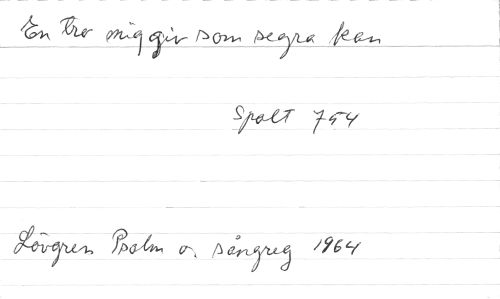 En tro mig giv som segra kan
Spalt 754
Lövgren Psalm o. sångreg 1964